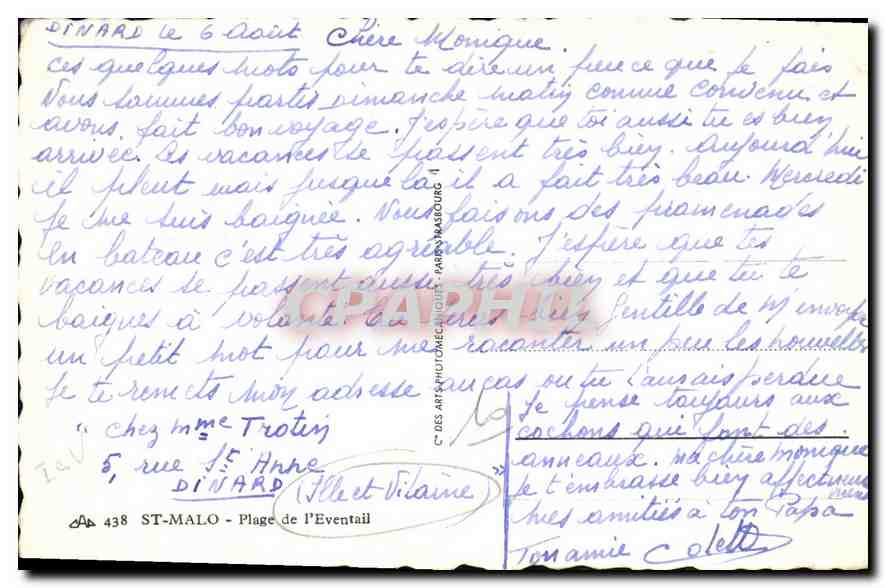 DINARD le 6 Août Chère Monique.
ces quelques mots pour te dire un peu ce que je fais
Nous sommes partis Dimanche matin comme convenu et
avons fait bon voyage. J'espère que toi aussi tu es bien
arrivée. Les vacances se passent très bien. Aujourd'hui
il pleut mais jusque la il a fait très beau. Mercredi
je me suis baignée. Nous faisons des promenades
en bateau c'est très agréable. J'espère que tes
vacances se passent aussi très bien et que tu te
baignes à volonté. tu serais bien gentille de m'envoyer
un petit mot pour me raconter un peu les nouvelles
Je te remets mon adresse au cas ou tu l'aurais perdue
chez Mme Trotin
5, rue Ste Anne
DINARD (Ille et Vilaine)
Je pense toujours aux
cochons qui font des
anneaux. ma chère monique
Je t'embrasse bien affectueusement
mes amitiés à ton Papa
Ton amie Colette
438 ST-MALO - Plage de l'Eventail
Cie DES ARTS PHOTOMÉCANIQUES - PARIS-STRASBOURG
CPAPHIL